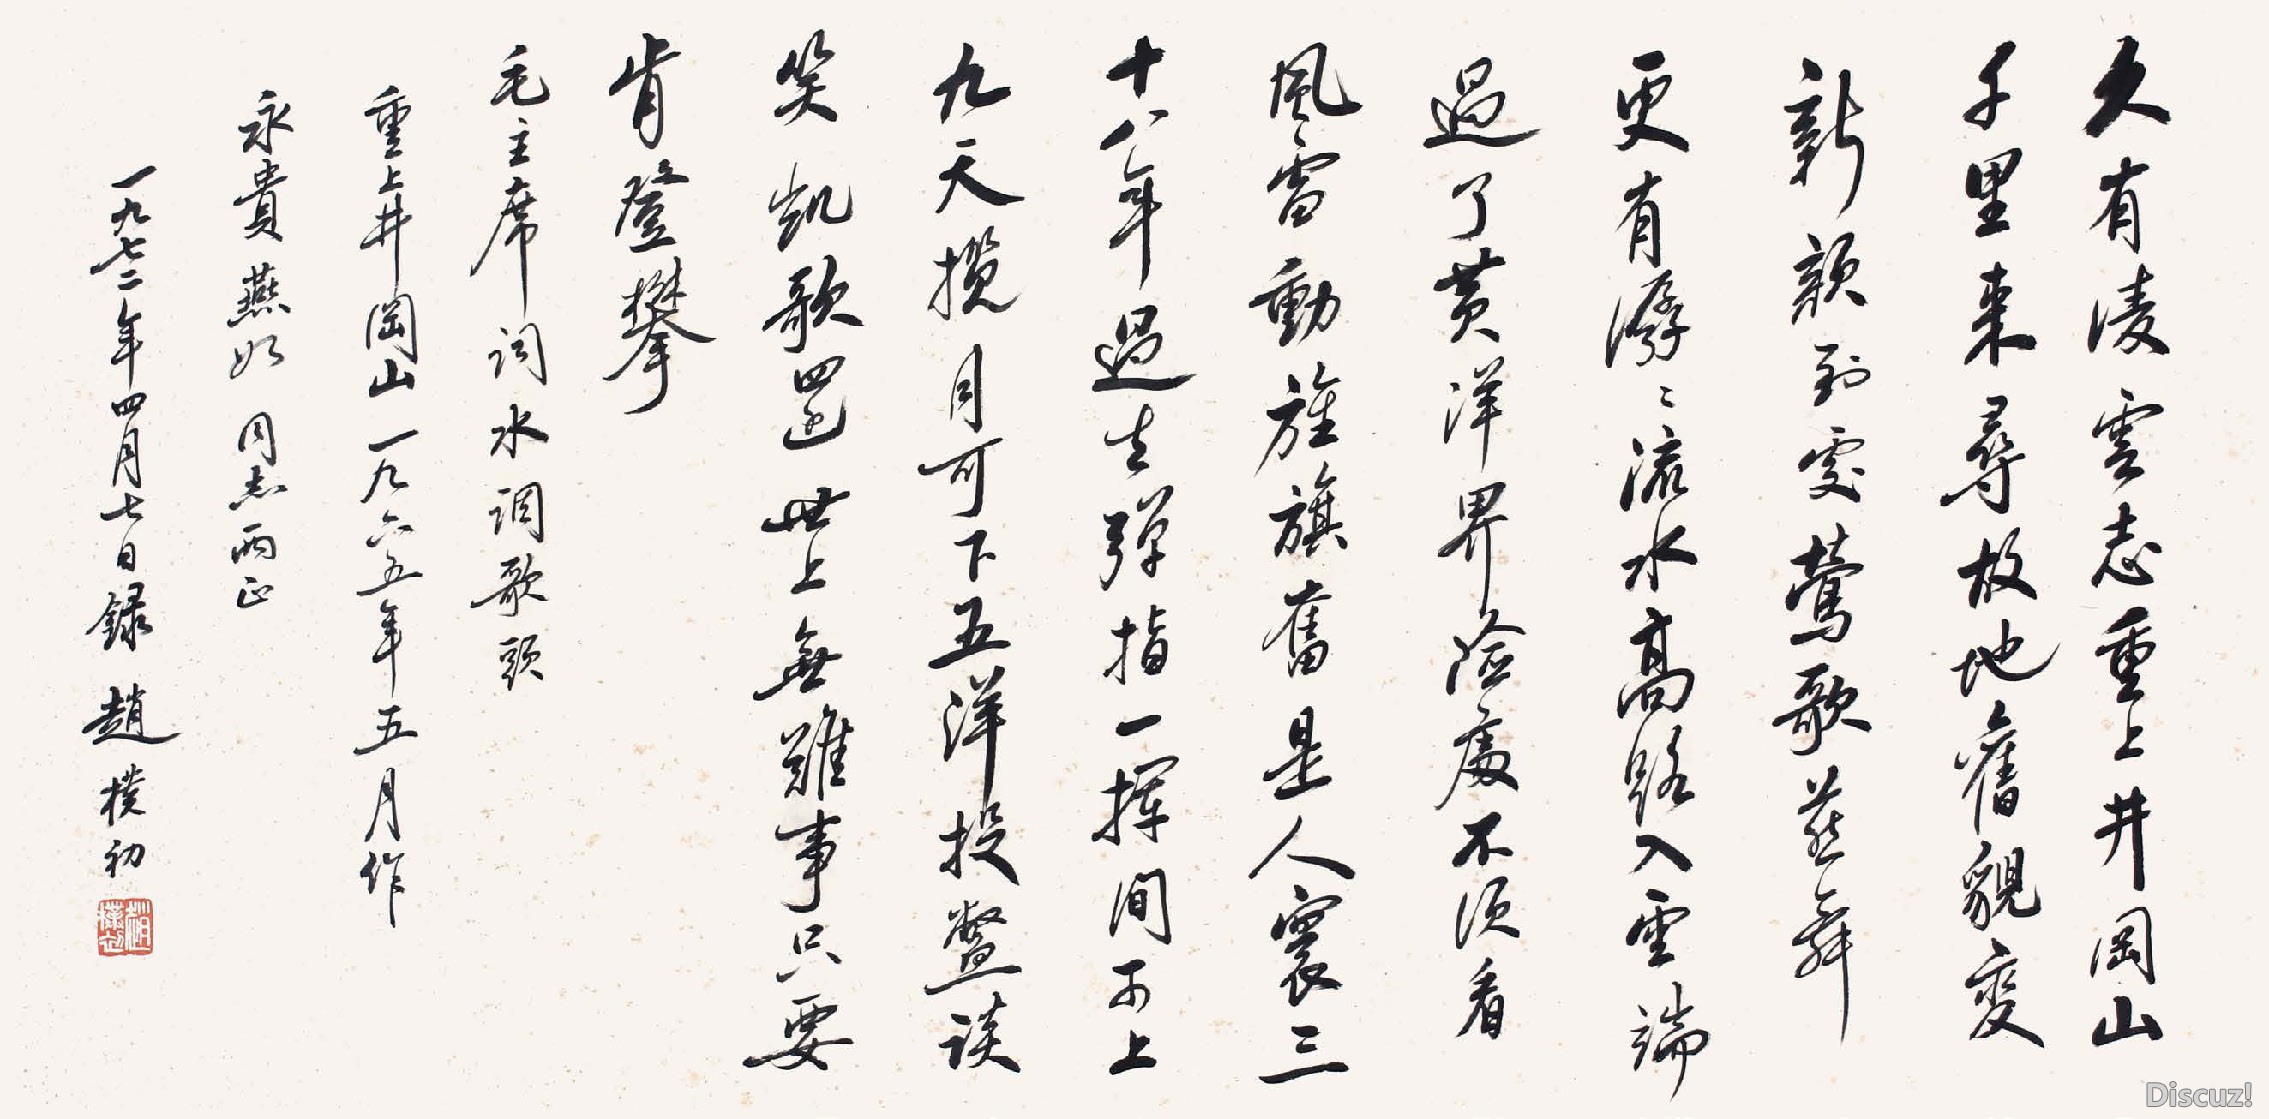 久有凌雲志重上井岡山
千里來尋故地舊貌變
新顏到處鶯歌燕舞
更有潺〻流水高路入雲端
過了黃洋界險處不須看
風雷動旌旗奮是人寰三
十八年過去彈指一揮間可上
九天攬月可下五洋捉鱉談
笑凱歌還世上無難事只要
肯登攀
毛主席詞水調歌頭
重上井岡山一九六五年五月作
永貴 燕如 同志兩正
一九七二年四月七日錄 趙樸初
趙樸初
Discuz!